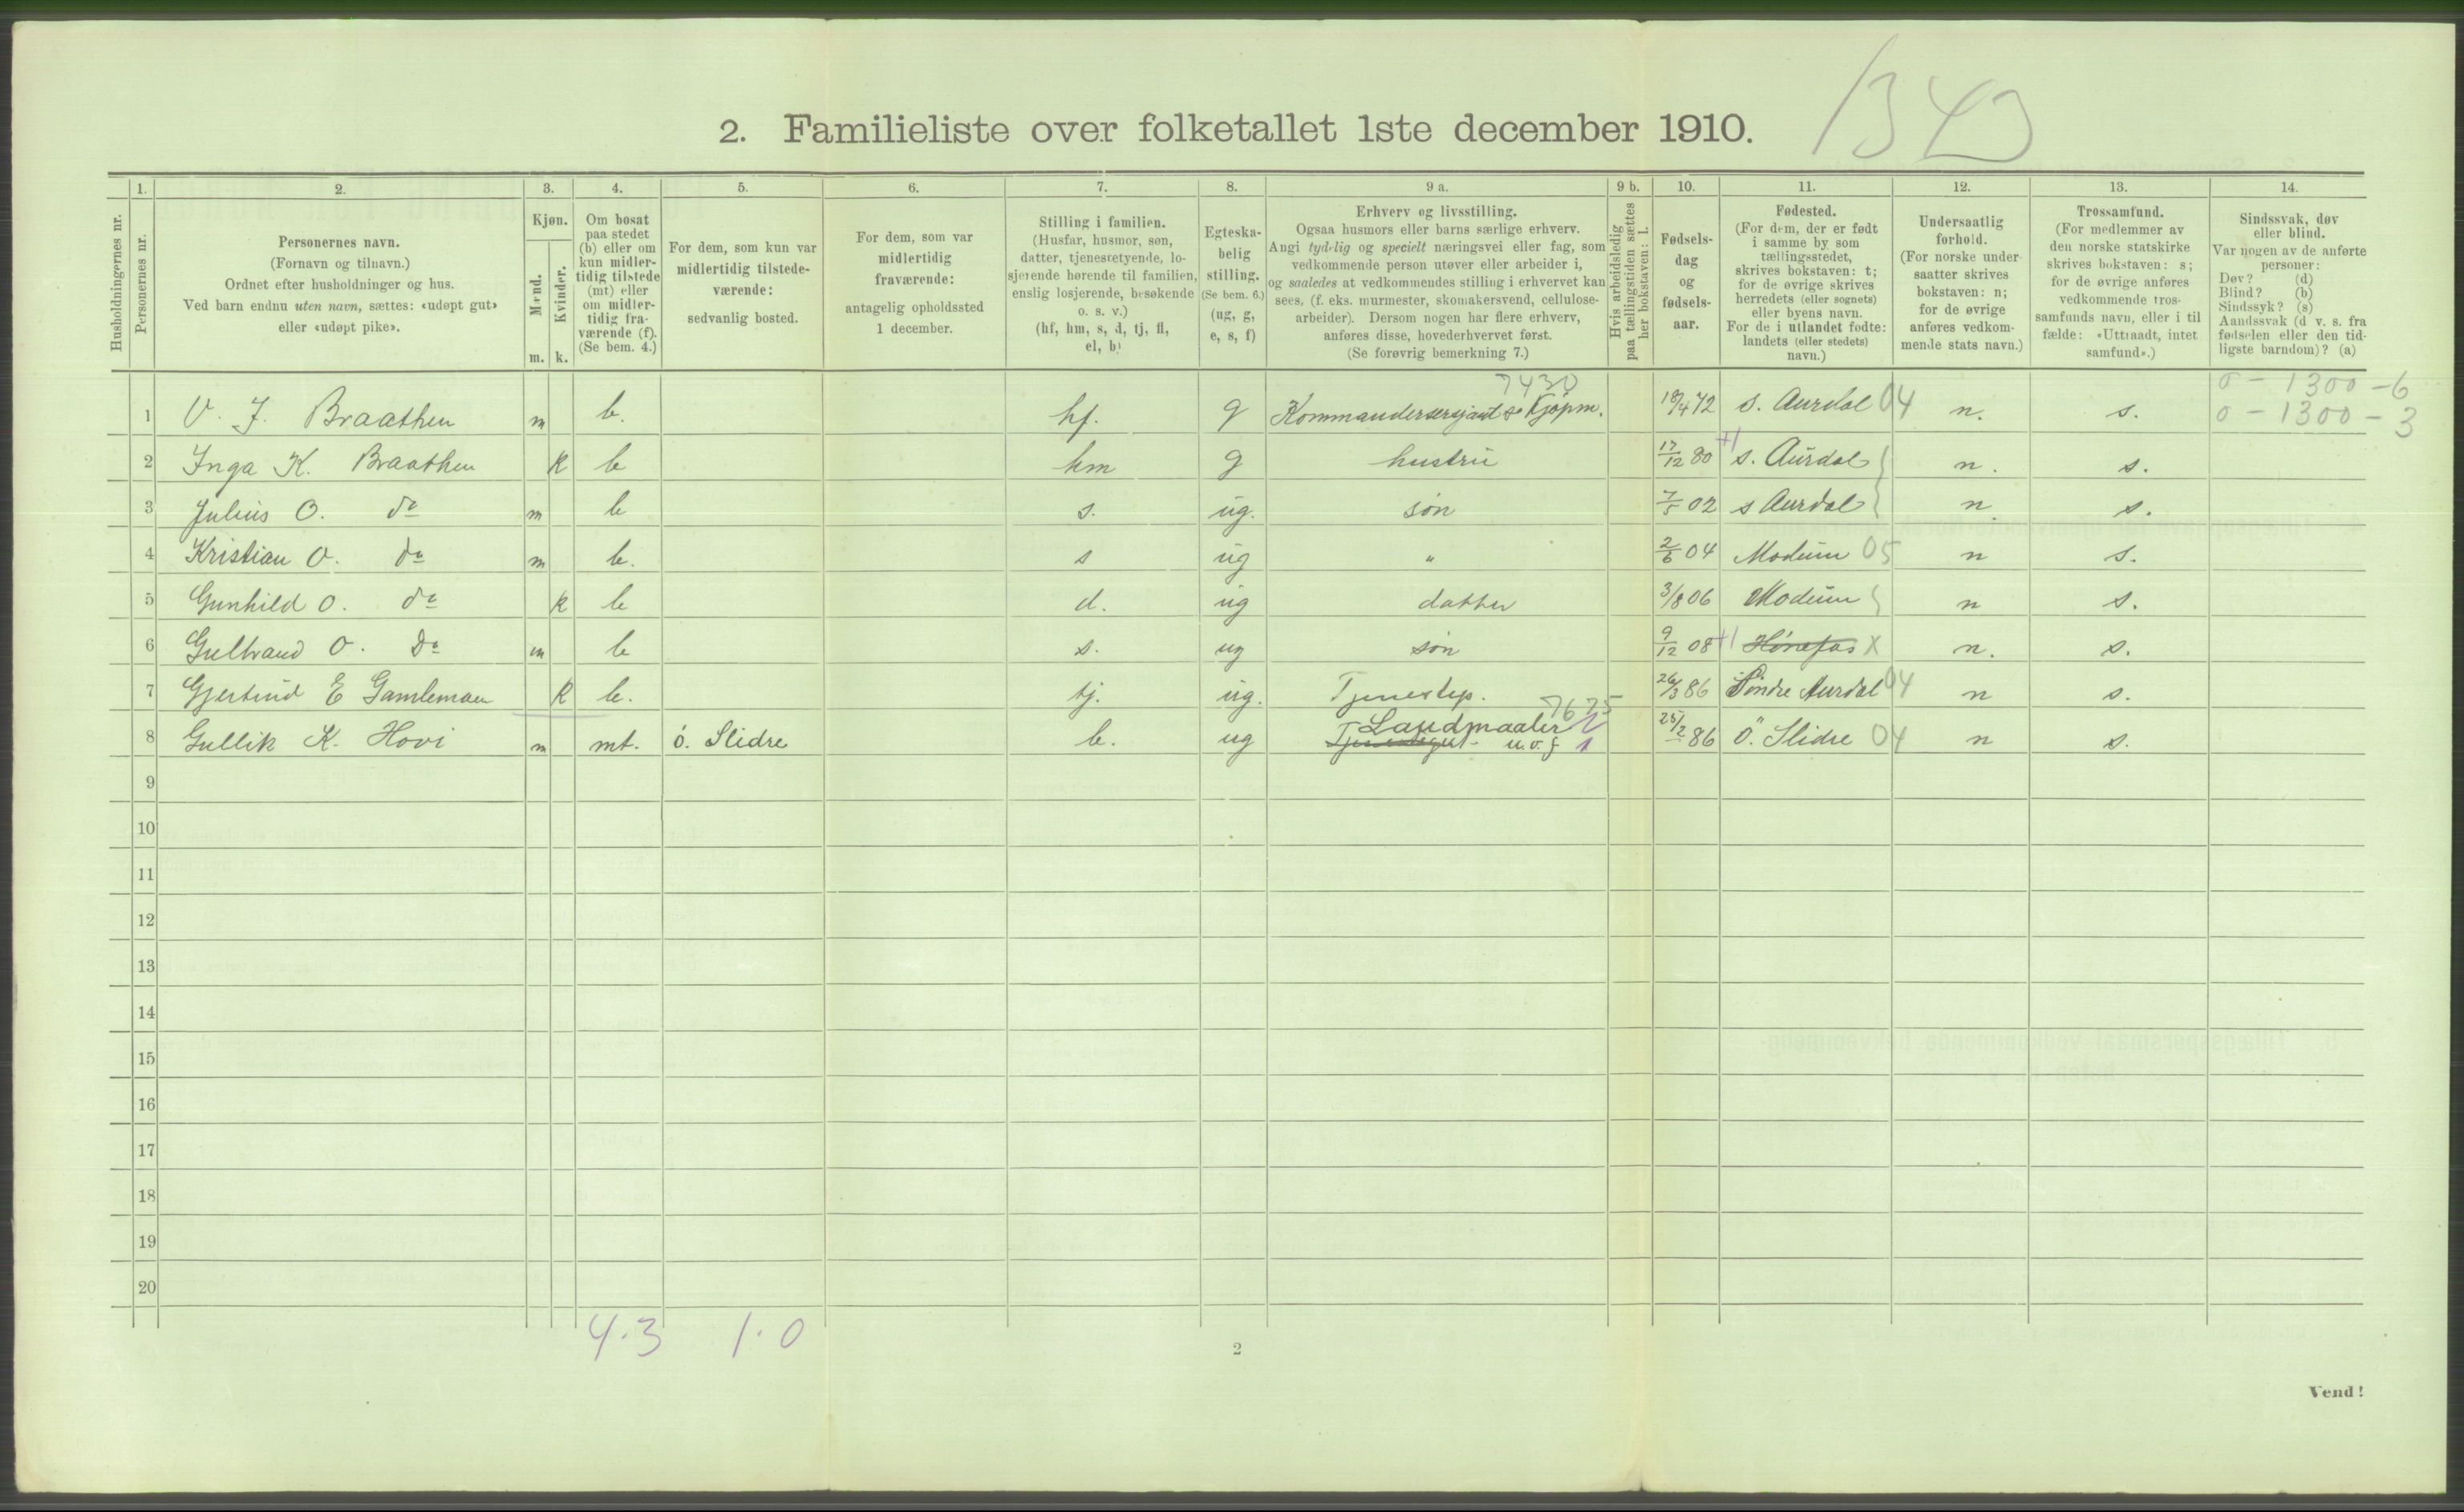 1343
2. Familieliste over folketallet 1ste december 1910.
1. 2. 3. 4. 5. 6. 7. 8. 9 a. 9 b. 10. 11. 12. 13. 14.
Husholdningernes nr.
Personernes nr.
Personernes navn.
(Fornavn og tilnavn.)
Ordnet efter husholdninger og hus.
Ved barn endnu uten navn, sættes: «udøpt gut»
eller «udøpt pike».
Kjøn.
Mænd.
Kvinder.
m. k.
Om bosat
paa stedet
(b) eller om
kun midler-
tidig tilstede
(mt) eller
om midler-
tidig fra-
værende (f).
(Se bem. 4.)
For dem, som kun var
midlertidig tilstede-
værende:
sedvanlig bosted.
For dem, som var
midlertidig
fraværende:
antagelig opholdssted
1 december.
Stilling i familien.
(Husfar, husmor, søn,
datter, tjenestetyende, lo-
sjerende hørende til familien,
enslig losjerende, besøkende
o. s. v.)
(hf, hm, s, d, tj, fl,
el, b)
Egteska-
belig
stilling.
(Se bem. 6.)
(ug, g,
e, s, f)
Erhverv og livsstilling.
Ogsaa husmors eller barns særlige erhverv.
Angi tydelig og specielt næringsvei eller fag, som
vedkommende person utøver eller arbeider i,
og saaledes at vedkommendes stilling i erhvervet kan
sees, (f. eks. murmester, skomakersvend, cellulose-
arbeider). Dersom nogen har flere erhverv,
anføres disse, hovederhvervet først.
(Se forøvrig bemerkning 7.)
Hvis arbeidsledig
paa tællingstiden sættes
her bokstaven: l.
Fødsels-
dag
og
fødsels-
aar.
Fødested.
(For dem, der er født
i samme by som
tællingsstedet,
skrives bokstaven: t;
for de øvrige skrives
herredets (eller sognets)
eller byens navn.
For de i utlandet fødte:
landets (eller stedets)
navn.)
Undersaatlig
forhold.
(For norske under-
saatter skrives
bokstaven: n;
for de øvrige
anføres vedkom-
mende stats navn.)
Trossamfund.
(For medlemmer av
den norske statskirke
skrives bokstaven: s;
for de øvrige anføres
vedkommende tros-
samfunds navn, eller i til
fælde: «Uttraadt, intet
samfund».)
Sindssvak, døv
eller blind.
Var nogen av de anførte
personer:
Døv? (d)
Blind? (b)
Sindssyk? (s)
Aandssvak (d. v. s. fra
fødselen eller den tid-
ligste barndom)? (a)
7430 0 - 1300 - 6
1 O. J. Braathen m b. hf. g Kommandersersjant & Kjøpm. 18/4 72 S. Aurdal 04 n. s. 0 - 1300 - 3
2 Inga K. Braathen k b hm g hustru 17/12 80 S. Aurdal n. s.
3 Julius O. do m b s. ug. søn 7/5 02 S Aurdal n. s.
4 Kristian O. do m b. s ug " 2/6 04 Modum 05 n s.
5 Gunhild O. do k b d. ug datter 3/8 06 Modum n s.
6 Gulbrand O. do m b s. ug søn 9/12 08 Hønefos x n. s.
7 Gjertrud E Gamlemoen k b. tj. ug. Tjenestep. 26/3 86 Søndre Aurdal 04 n s.
7625
Landmaaler
8 Gullik K. Hovi m mt. ö. Slidre b. ug Tjenestegut u.o.f 1 25/2 86 Ö. Slidre 04 n s.
9
10
11
12
13
14
15
16
17
18
19
20
4.3 1.0
2
Vend!